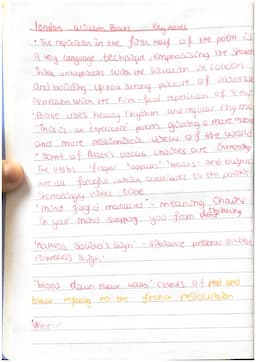 london William Blake Key notes
• The repition in the first half of the poem is
a key language technique, emphasising the speaker
unhappiness with the situation in London
and building up to a strong picture of universal
oppression with the five-fold repetition of 'every'
• Blake uses heavy rhythm and regular rhyme
• This is an experience poem giving a more
and more pessimistic view of the world
• Some of Blake's vocab choices are
the verbs "forged" "appalls" "blasts" and
are all forceful which contributes to the poem's
increasingly tone
"mind forg'd manacles" - meaning chains
in your mind stopping you from
"hapless Soldier's sigh" - sibilance
powerless sigh'
"blood down Palace walls" colours of red and
refering to the french revolution